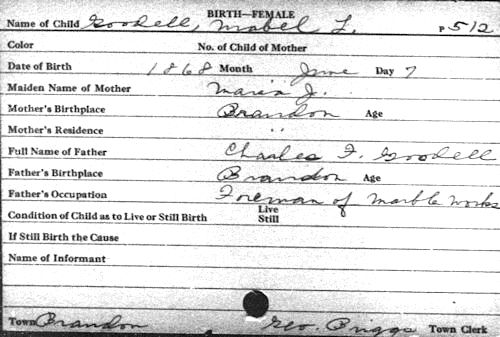 BIRTH—FEMALE
Name of Child Goodell, Mabel L. P 512
Color No. of Child of Mother
Date of Birth 1868 Month June Day 7
Maiden Name of Mother Maria J.
Mother's Birthplace Brandon Age
Mother's Residence "
Full Name of Father Charles F. Goodell
Father's Birthplace Brandon Age
Father's Occupation Foreman of Marble Works
Condition of Child as to Live or Still Birth Live
Still
If Still Birth the Cause
Name of Informant
Town Brandon Geo. Briggs Town Clerk